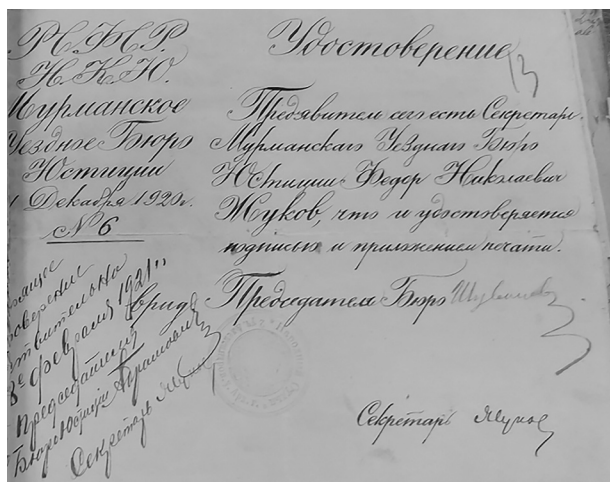 Р.С.Ф.С.Р.
Н.К.Ю.
Мурманское
Уездное Бюро
Юстиции
Декабря 1920г.
№ 6
Удостоверение
13
Предявитель сего есть Секретарь
Мурманскаго Уезднаго Бюро
Юстиции Федор Николаевич
Жуков, что и удостоверяется
подписью и приложением печати.
Врид Председателя Бюро
Секретарь Жуков
8го февраля 1921г.
Председатель
Бюро Юстиции
Секретарь Жуков